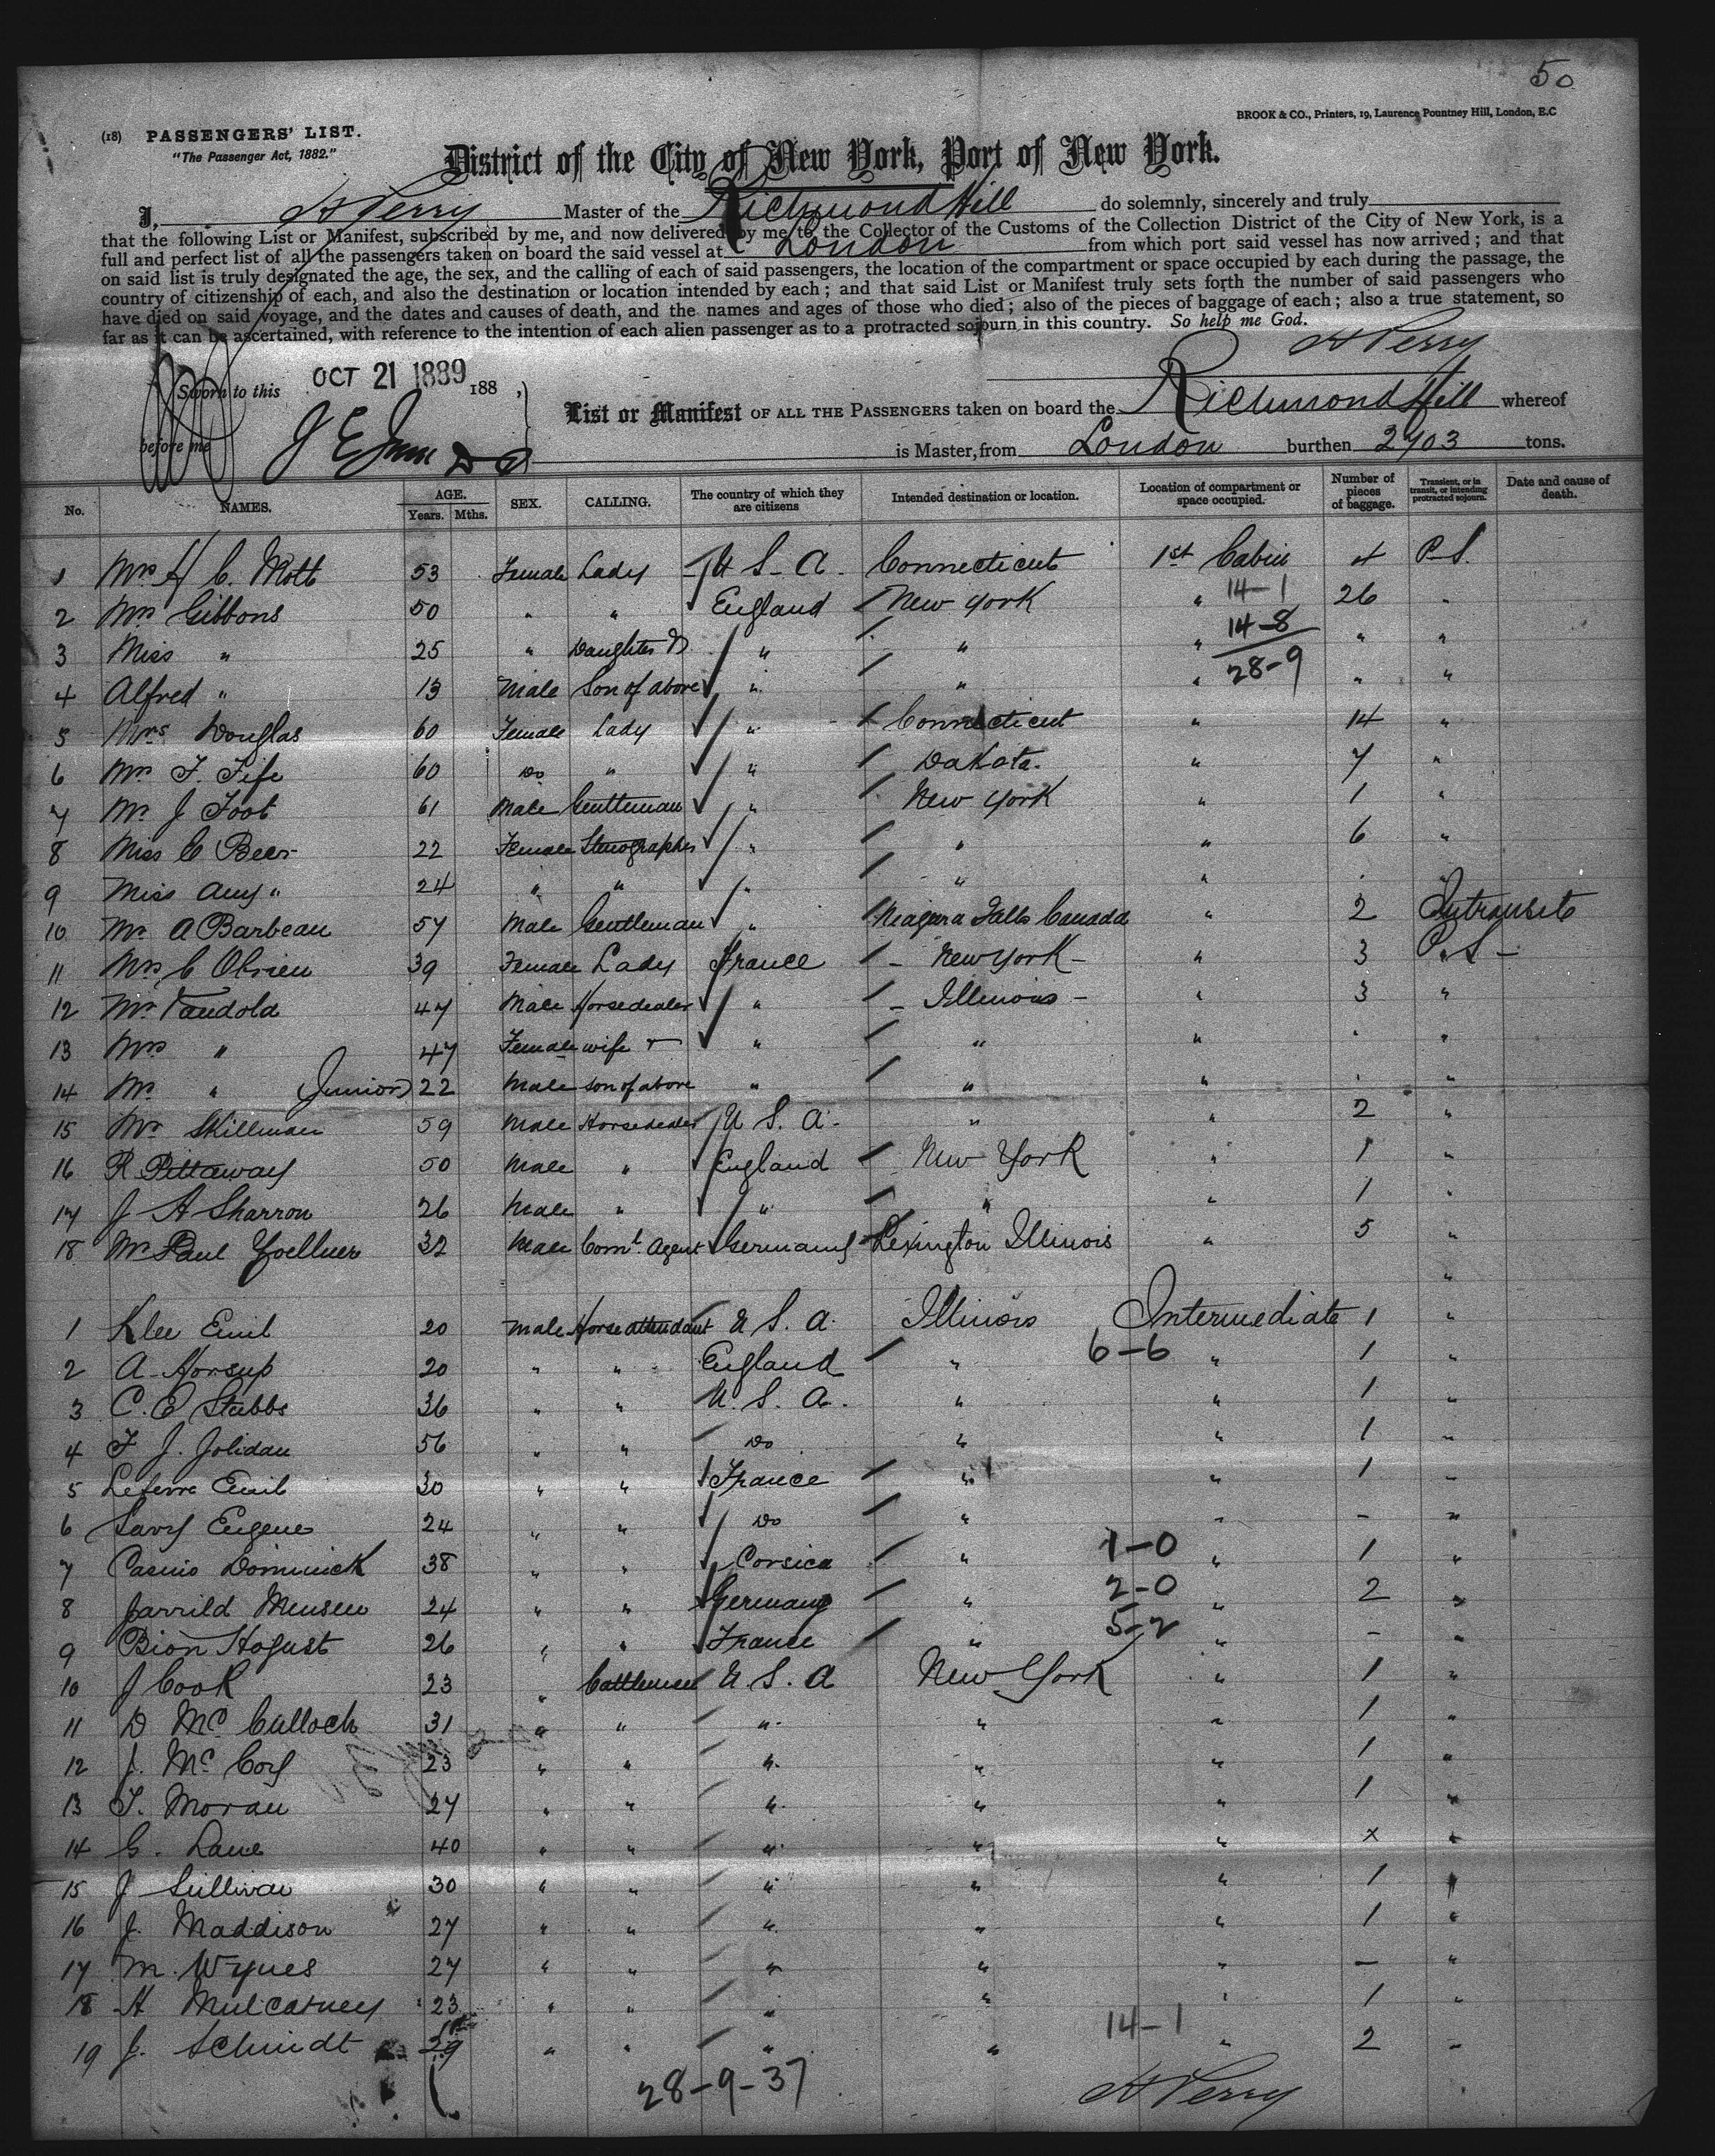 50
BROOK & CO., Printers, 19, Laurence Pountney Hill, London, E.C
(18) PASSENGERS' LIST.
"The Passenger Act, 1882."
District of the City of New York, Port of New York.
I, H Perry Master of the Richmond Hill do solemnly, sincerely and truly
that the following List or Manifest, subscribed by me, and now delivered by me to the Collector of the Customs of the Collection District of the City of New York, is a
full and perfect list of all the passengers taken on board the said vessel at London from which port said vessel has now arrived; and that
on said list is truly designated the age, the sex, and the calling of each of said passengers, the location of the compartment or space occupied by each during the passage, the
country of citizenship of each, and also the destination or location intended by each; and that said List or Manifest truly sets forth the number of said passengers who
have died on said voyage, and the dates and causes of death, and the names and ages of those who died; also of the pieces of baggage of each; also a true statement, so
far as it can be ascertained, with reference to the intention of each alien passenger as to a protracted sojourn in this country. So help me God.
H Perry
Sworn to this OCT 21 1889 188 ,
before me
List or Manifest OF ALL THE PASSENGERS taken on board the Richmond Hill whereof
is Master, from London burthen 2703 tons.
No. NAMES. AGE. Years. Mths. SEX. CALLING. The country of which they are citizens Intended destination or location. Location of compartment or space occupied. Number of pieces of baggage. Transient, or in transit, or intending protracted sojourn. Date and cause of death.
1 Mrs H C. Mott 53 Female Lady U S. A. Connecticut 1st Cabin 4 P. S.
2 Mrs Gibbons 50 " " England New York " 14-1 26 "
3 Miss " 25 " Daughter " " " 14-8 " "
4 Alfred " 13 Male Son of above " " " 28-9 " "
5 Mrs Douglas 60 Female Lady " Connecticut " 14 "
6 Mrs F. Fife 60 Do " " Dakota. " 7 "
7 Mr J Foot 61 Male Gentleman " New York " 1 "
8 Miss C Beer 22 Female Stenographer " " " 6 "
9 Miss Amy " 24 " " " " " " "
10 Mr A Barbeau 57 Male Gentleman " Niagara Falls Canada " 2 Intransit
11 Mrs C Obrien 39 Female Lady France - New York - " 3 P. S -
12 Mr Vandold 47 Male Horsedealer " - Illinois - " 3 "
13 Mrs " 47 Female wife " " " " "
14 Mr " (Junior) 22 Male son of above " " " " "
15 Mr Skillman 59 Male Horsedealer U S. A. " " 2 "
16 R Pittaway 50 Male " England New York " 1 "
17 J A Sharron 26 Male " " " " 1 "
18 Mr Paul Zoellner 32 Male Comt. Agent Germany Lexington Illinois " 5 "
"
1 Klee Emil 20 Male Horse attendant U S. A. Illinois Intermediate 1 "
2 A. Horsup 20 " " England " 6-6 " 1 "
3 C. E Stubbs 36 " " U. S. A. " " 1 "
4 F J. Jolidan 56 " " Do " " 1 "
5 Lefevre Emil 30 " " France " " 1 "
6 Savy Eugene 24 " " Do " " - "
7 Casino Dominick 38 " " Corsica " 1-0 " 1 "
8 Jarrild Mensen 24 " " Germany " 2-0 " 2 "
9 Bion Hogust 26 " " France " 5-2 " - "
10 J Cook 23 " Cattlemen U S. A New York " 1 "
11 D McCulloch 31 " " " " " 1 "
12 J. McCoy 23 " " " " " 1 "
13 T. Moran 27 " " " " " 1 "
14 G. Lane 40 " " " " " x "
15 J Sullivan 30 " " " " " 1 "
16 J. Maddison 27 " " " " " 1 "
17 M. Wynes 27 " " " " " - "
18 H Mulcarney 23 " " " " " 1 "
19 J. Schmidt 29 " " " " 14-1 " 2 "
28-9-37
H Perry